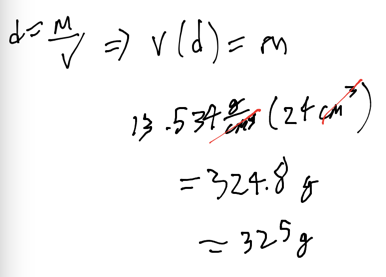 d = m/v ⇒ v(d) = m
13.534 g/cm³ (24 cm³)
= 324.8 g
≈ 325 g